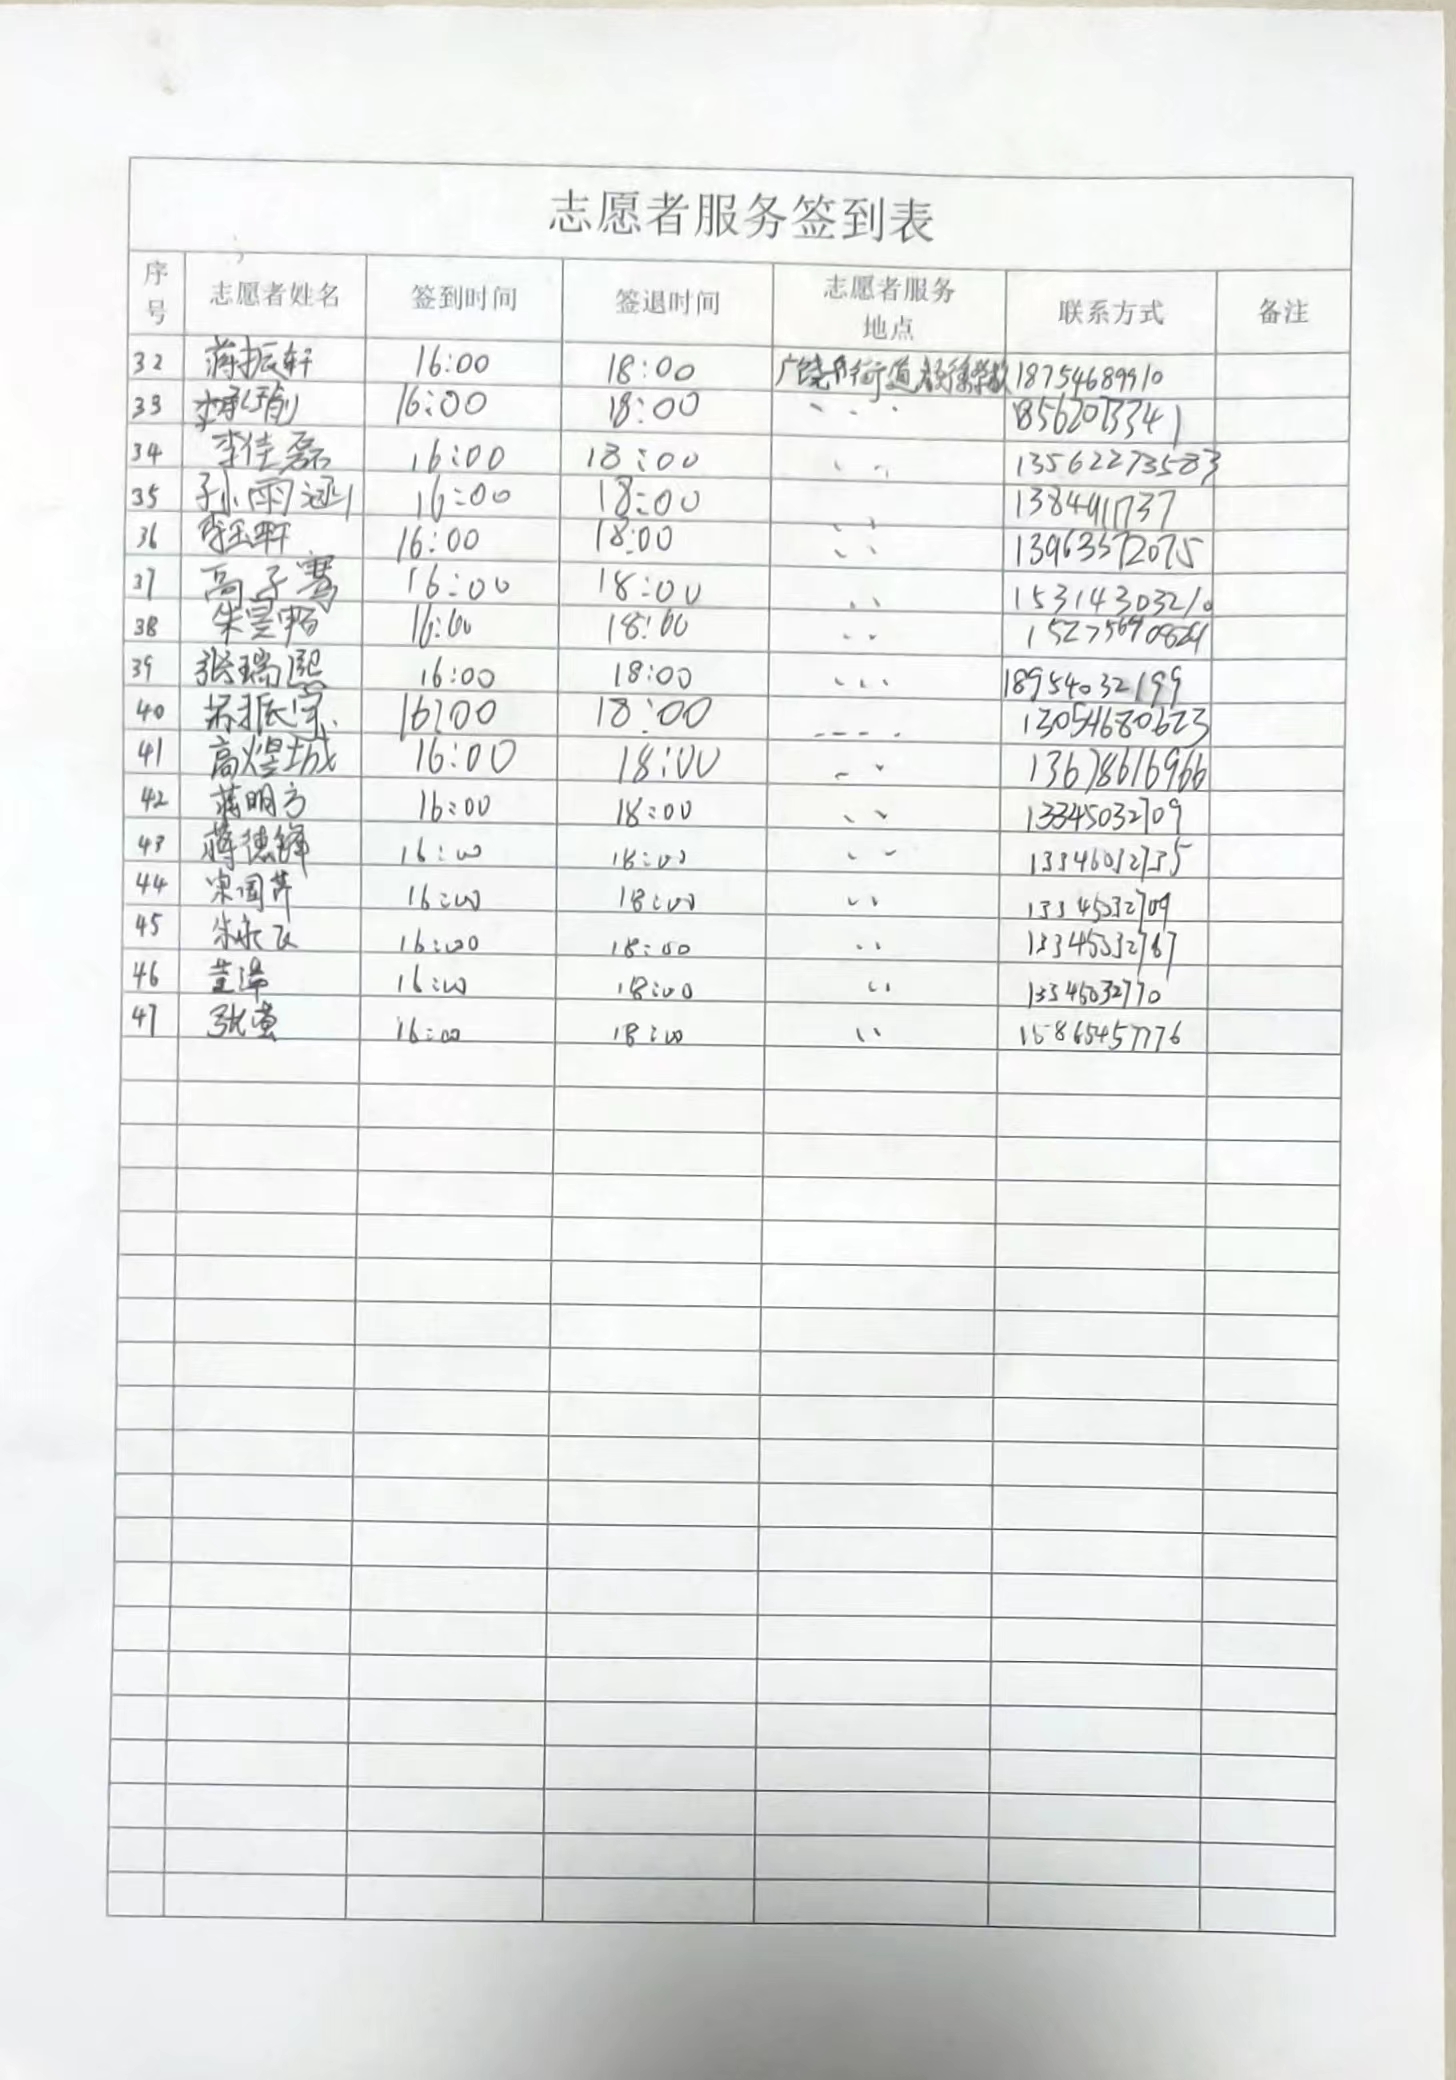 志愿者服务签到表
序号 志愿者姓名 签到时间 签退时间 志愿者服务地点 联系方式 备注
32 蒋振轩 16:00 18:00 广饶街道 18754689910
33 16:00 18:00 、、、
34 李佳磊 16:00 18:00 、、、 13562273583
35 孙雨涵 16:00 18:00 、、 1384911737
36 16:00 18:00 、、 13963572075
37 高子骞 16:00 18:00 、、 15314303210
38 朱昊畅 16:00 18:00 、、
39 张瑞熙 16:00 18:00 、、、 18954032199
40 16:00 18:00 、、、、 13054680623
41 高煜城 16:00 18:00 、、 13678616966
42 蒋明方 16:00 18:00 、、 13345032709
43 蒋德锋 16:00 18:00 、、 13346032735
44 宋国芹 16:00 18:00 、、 13345032709
45 朱永飞 16:00 18:00 、、 13345032767
46 董泽 16:00 18:00 、、 13345032770
47 张莹 16:00 18:00 、、 15865457776